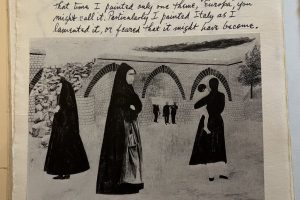 that time I painted only one theme, "Europa," you
might call it. Particularly I painted Italy as I
lamented it, or feared that it might have become.